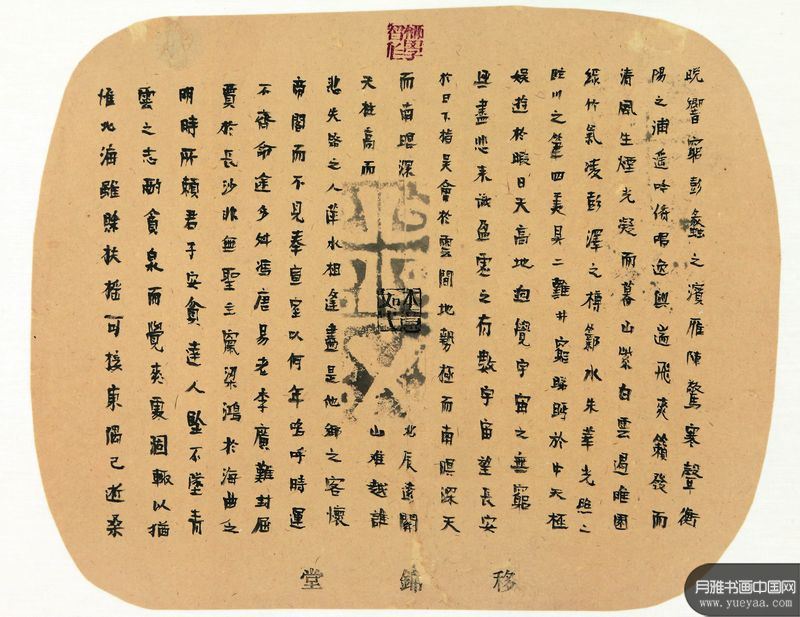 晚響窮彭蠡之濱雁陣驚寒聲衡
陽之浦遙吟俯唱逸興遄飛爽籟發而
清風生煙光凝而暮山紫白雲遏睢園
綠竹氣凌彭澤之樽鄴水朱華光照之
臨川之筆四美具二難并窮睇眄於中天極
娛遊於暇日天高地迥覺宇宙之無窮
興盡悲來識盈虛之有數宇宙望長安
於日下指吳會於雲間地勢極而南暝深天
而南暝深 北辰遠關
天柱高而 山難越誰
悲失路之人萍水相逢盡是他鄉之客懷
帝閽而不見奉宣室以何年嗚呼時運
不齊命途多舛馮唐易老李廣難封屈
賈於長沙非無聖主竄梁鴻於海曲乏
明時所賴君子安貧達人堅不墜青
雲之志酌貪泉而覺爽處涸轍以猶
惟北海雖賒扶搖可接東隅已逝桑
移 堂
月雅书画中国网
www.yueyaa.com